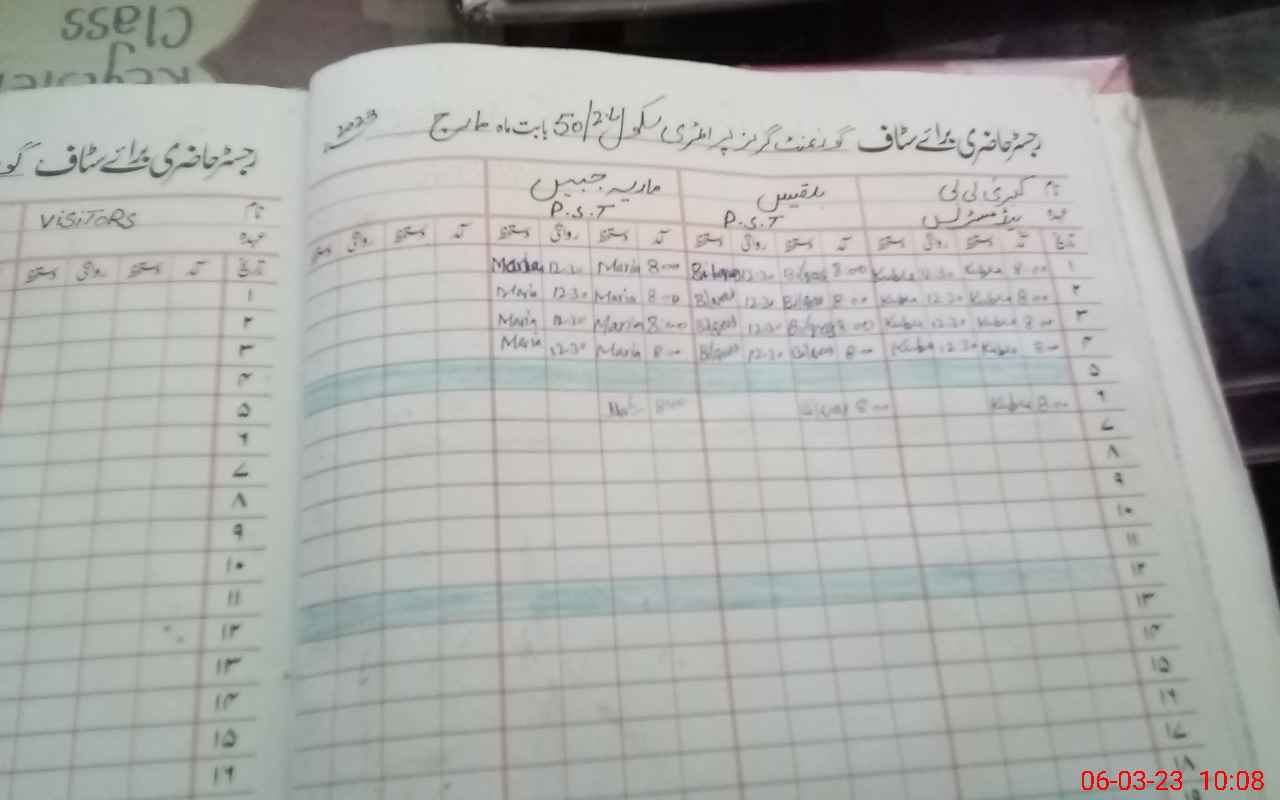 Class
Register
رجسٹر حاضری برائے سٹاف گورنمنٹ گرلز پرائمری سکول 50/2.L بابت ماہ مارچ 2023
نام کبریٰ بی بی بلقیس ماریہ جبیں
عہدہ ہیڈمسٹریس P.S.T P.S.T
تاریخ آمد دستخط روانگی دستخط آمد دستخط روانگی دستخط آمد دستخط روانگی دستخط آمد دستخط روانگی دستخط
۱ 8:00 Kubra 12:30 Kubra 8:00 Bilqees 12:30 Bilqees 8:00 Maria 12:30 Maria
۲ 8:00 Kubra 12:30 Kubra 8:00 Bilqees 12:30 Bilqees 8:00 Maria 12:30 Maria
۳ 8:00 Kubra 12:30 Kubra 8:00 Bilqees 12:30 Bilqees 8:00 Maria 12:30 Maria
۴ 8:00 Kubra 12:30 Kubra 8:00 Bilqees 12:30 Bilqees 8:00 Maria 12:30 Maria
۵
۶ 8:00 Kubra 8:00 8:00
۷
۸
۹
۱۰
۱۱
۱۲
۱۳
۱۴
۱۵
۱۶
۱۷
۱۸
رجسٹر حاضری برائے سٹاف
نام VISITORS
عہدہ
تاریخ آمد دستخط روانگی دستخط
۱
۲
۳
۴
۵
۶
۷
۸
۹
۱۰
۱۱
۱۲
۱۳
۱۴
۱۵
۱۶
06-03-23 10:08